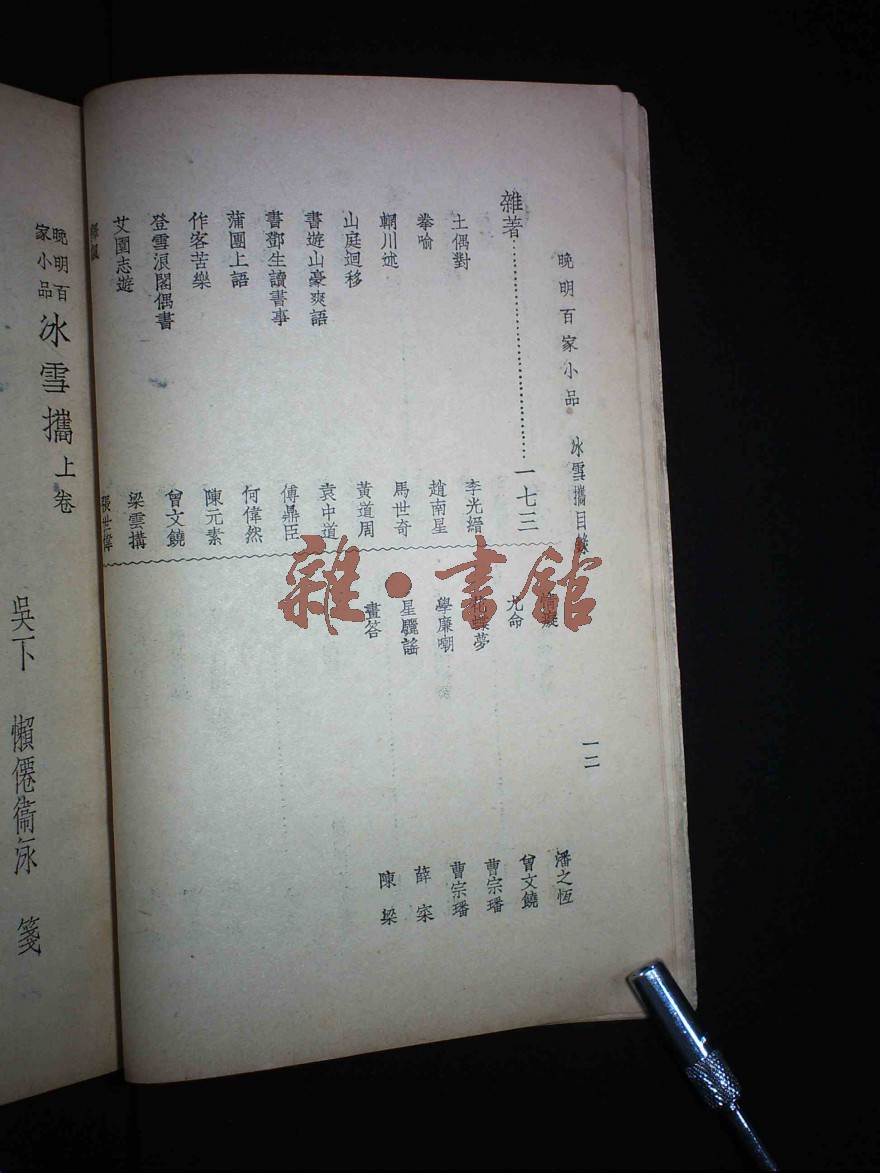 晚明百家小品 冰雪攜目錄
一二
雜著……一七三
土偶對 李光縉
拳喻 趙南星
輞川述 馬世奇
山庭迴移 黃道周
書遊山豪爽語 袁中道
書鄧生讀書事 傅鼎臣
蒲團上語 何偉然
作客苦樂 陳元素
登雪浪閣偶書 曾文饒
艾園志遊 梁雲搆
張世偉
潘之恆
尤命 曾文饒
蝶夢 曹宗璠
學廉嘲 曹宗璠
星驪謠 薛寀
畫答 陳梁
晚明百家小品 冰雪攜 上卷
吳下 懶僊衞泳 箋
雜·書館